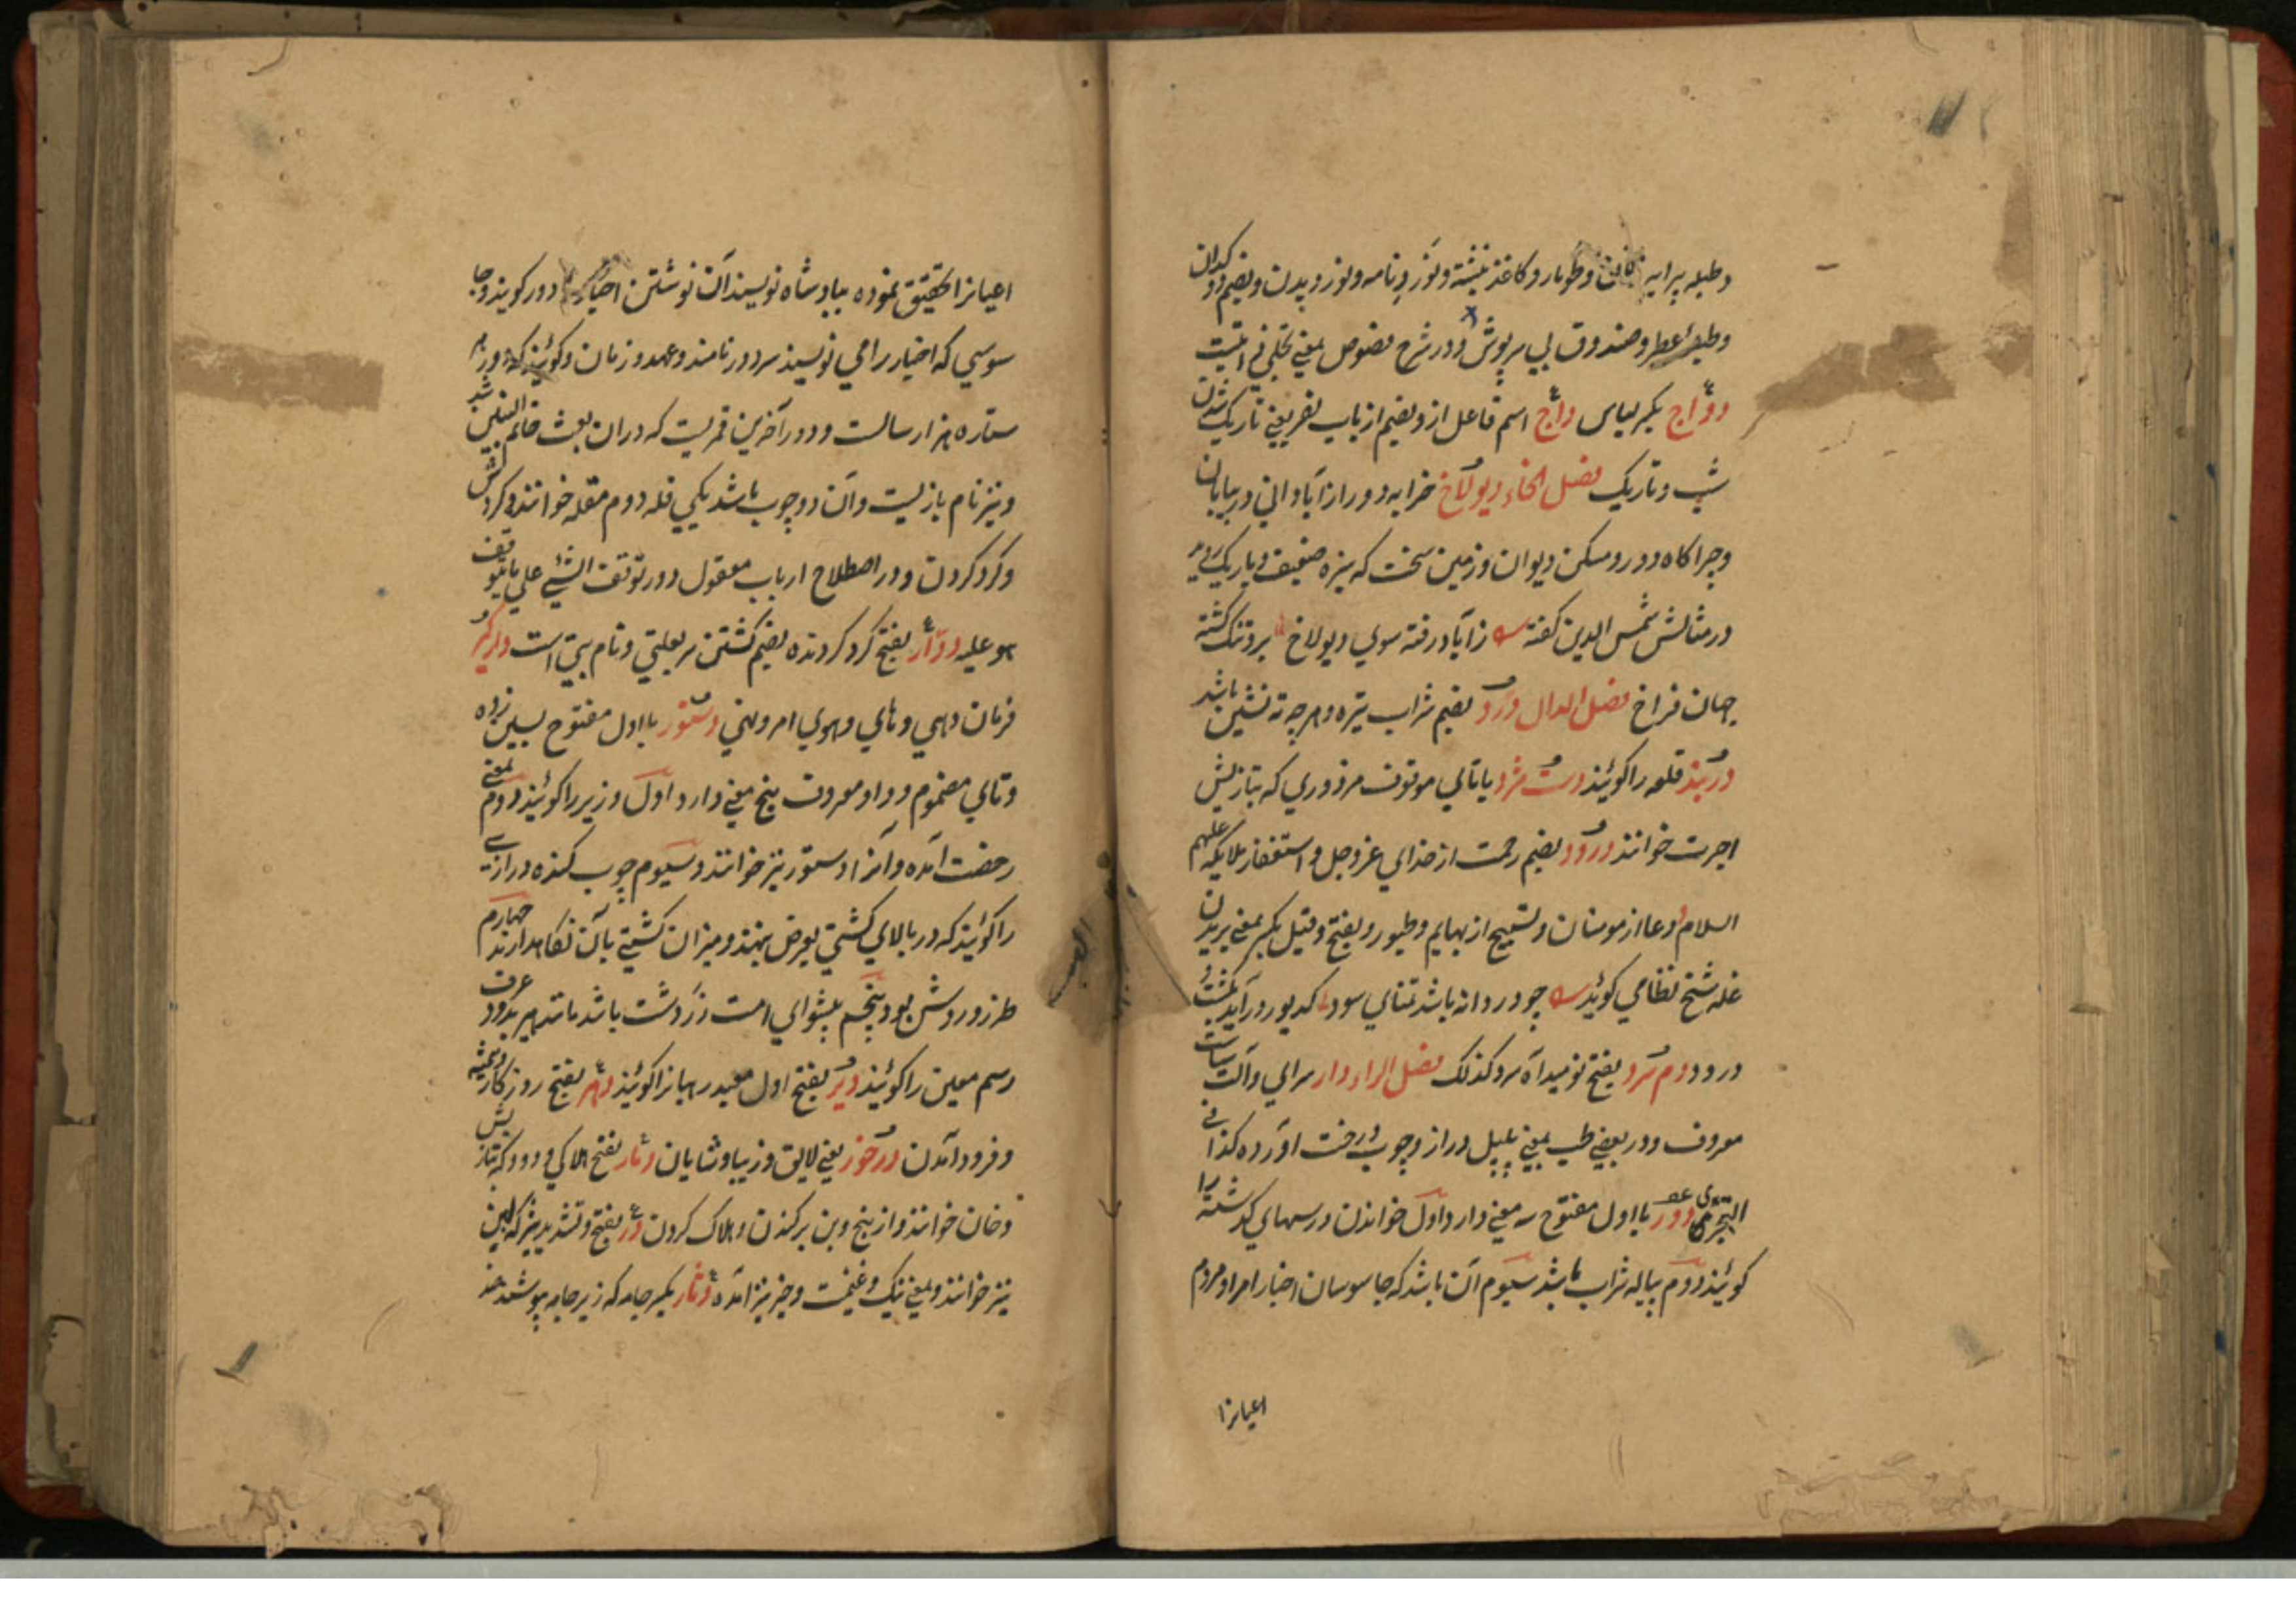 وطبله پرایه وطومار و کاغذ نبشته و نوَرد نامه و نوردیدن و بضم دوکدان
وطبلهٔ عطر و صندوق بی سرپوش و در شرح نصوص بمعنی تجلی ذاتیست
دوّاج بکسر لباس داج اسم فاعل ازو بضم از باب نصر یعنی تاریک شدن
شب و تاریک فصل الخاء دیولاخ خرابه دور از آبادانی در بیابان
و چراگاه دور و مسکن دیوان و زمین سخت که سبزه ضعیف و باریک روید
در مثالش شمس الدین گفته زآباد رفته سوی دیولاخ برو تنک گشته
جهان فراخ فصل الدال دُرد بضم شراب تیره و هرچه ته نشین باشد
دربند قلعه را گویند دست مزد باتای موقوف مزدوری که بتازیش
اجرت خوانند درود بضم رحمت از خدای عز و جل و استغفار ملایکه علیهم
السلام و دعا از مومنان و تسبیح از بهایم و طیور و بفتح و قیل بکسر بمعنی بریدن
غله شیخ نظامی گوید چو در دانه باشد تمنای سود کدیور در آید بکشت
درود دم سرد بفتح نومید آه سرد کذلک فصل الراء دار سرای و آلت سیاست
معروف و در بعضی طب بمعنی پلپل دراز و چوب درخت آورده کذا فی
التبختری دور با اول مفتوح سه معنی دارد اول خواندن درسهای گذشته را
گویند دوم پیاله شراب باشد سیوم آن باشد که جاسوسان اخبار امرا و مردم
اعیانرا
اعیانرا تحقیق نموده ببادشاه نویسند آن نوشتن اخبار را دور گویند و جا
سوسی که اخبار را می نویسند سر دور نامند و عهد و زمان و گویند که دور هر
ستاره هزار سالست و دور آخرین قمریست که دران بعث خاتم النبیین شد
و نیز نام بازیست و آن دو چوب باشد یکی قله دوم مقله خوانند و گردش
و گرد کردن و در اصطلاح ارباب معقول دور توقف الشئ علی ما یتوقف
هو علیه دوّار بفتح گرد گردنده بضم گشتن سر بعلتی و نام بتی است دارگیر
فرمان دهی و های و هوی امر و نهی دستور با اول مفتوح بسین زده
و تای مضموم و واو معروف پنج معنی دارد اول وزیر را گویند دوم بمعنی
رخصت آمده و آنرا دستوری نیز خوانند و سیوم چوب گنده درازی
را گویند که در بالای کشتی بعرض نهند و میزان کشتی بآن نگاهدارند چهارم
طرز و روش بود پنجم پیشوای امت زردشت باشد مانند هیربد و در عرف
رسم معین را گویند دیر بفتح اول معبد رهبانرا گویند دهر بفتح روزکار و همیشه
و فرود آمدن درخور یعنی لایق و زیبا و شایان دمار بفتح هلاکی و دود که بتازیش
دخان خوانند و از بیخ و بن برکندن و هلاک کردن دُر بفتح و تشدید شیر که لبن
نیز خوانند و بمعنی نیک و غنیمت و خیر نیز آمده دثار بکسر جامه که زیر جامه پوشند ضد